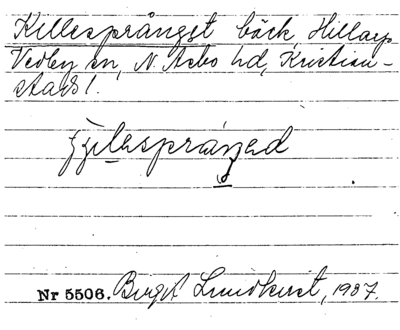 Killesprångst bäck, Hillarps
Vedby sn, N. Åsbo hd, Kristian-
stads l.
Nr 5506. Birgit Lundkvist, 1937.